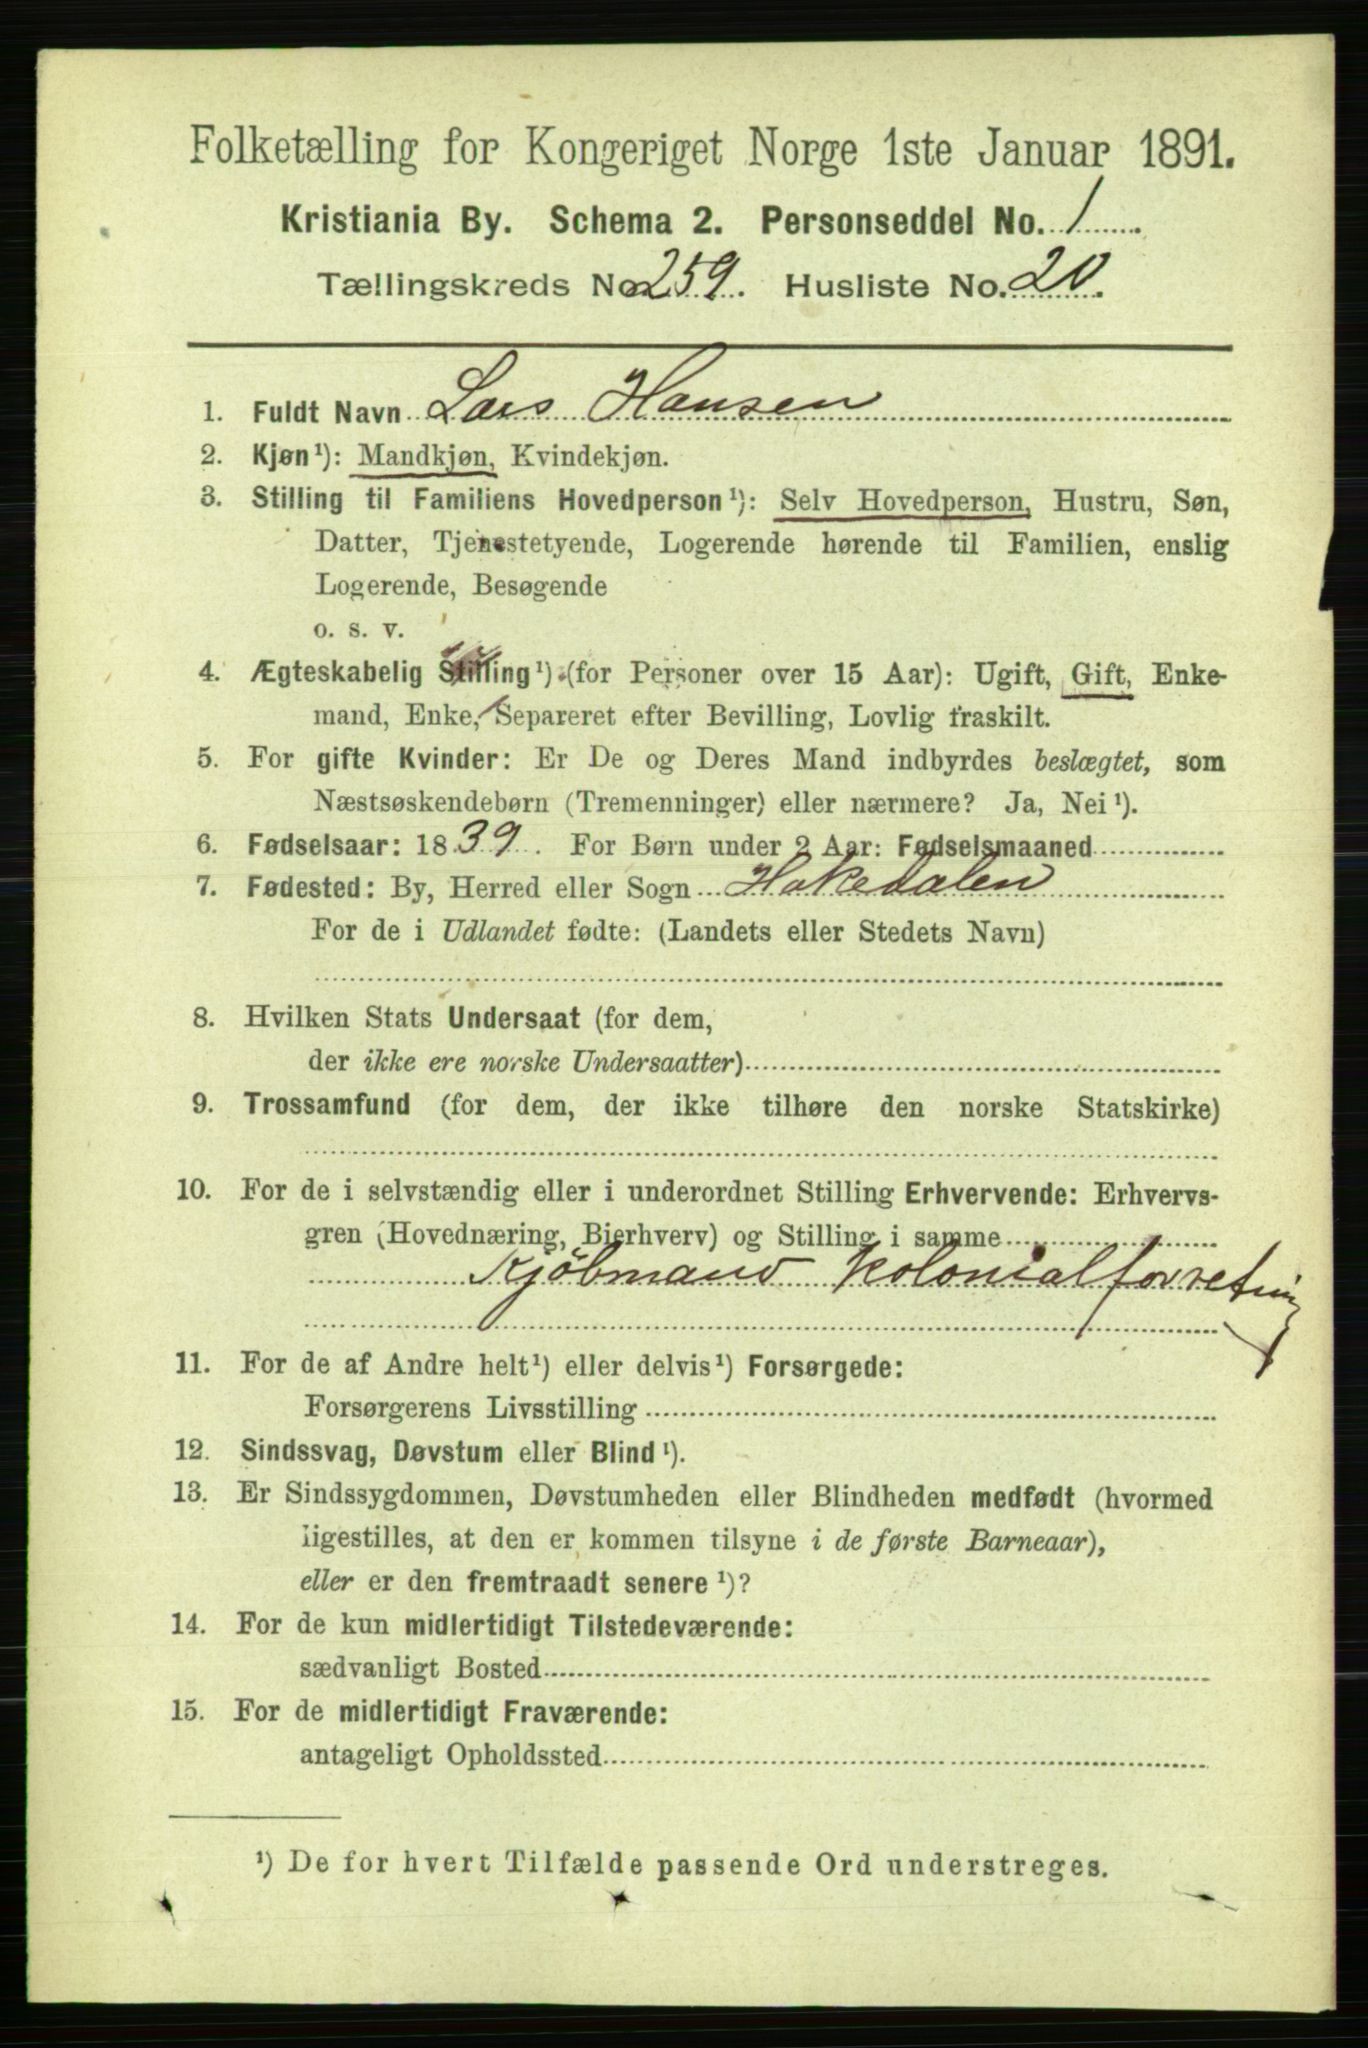 Folketælling for Kongeriget Norge 1ste Januar 1891.
Kristiania By. Schema 2. Personseddel No. 1
Tællingskreds No. 259. Husliste No. 20.
1. Fuldt Navn Lars Hansen
2. Kjøn¹): Mandkjøn, Kvindekjøn.
3. Stilling til Familiens Hovedperson¹): Selv Hovedperson, Hustru, Søn,
Datter, Tjenestetyende, Logerende hørende til Familien, enslig
Logerende, Besøgende
o. s. v.
4. Ægteskabelig Stilling¹) (for Personer over 15 Aar): Ugift, Gift, Enke-
mand, Enke, Separeret efter Bevilling, Lovlig fraskilt.
5. For gifte Kvinder: Er De og Deres Mand indbyrdes beslægtet, som
Næstsøskendebørn (Tremenninger) eller nærmere? Ja, Nei¹).
6. Fødselsaar: 1839. For Børn under 2 Aar: Fødselsmaaned
7. Fødested: By, Herred eller Sogn Hakedalen
For de i Udlandet fødte: (Landets eller Stedets Navn)
8. Hvilken Stats Undersaat (for dem,
der ikke ere norske Undersaatter)
9. Trossamfund (for dem, der ikke tilhøre den norske Statskirke)
10. For de i selvstændig eller i underordnet Stilling Erhvervende: Erhvervs-
gren (Hovednæring, Bierhverv) og Stilling i samme
Kjöbmand Kolonialforretning
11. For de af Andre helt¹) eller delvis¹) Forsørgede:
Forsørgerens Livsstilling
12. Sindssvag, Døvstum eller Blind¹).
13. Er Sindssygdommen, Døvstumheden eller Blindheden medfødt (hvormed
ligestilles, at den er kommen tilsyne i de første Barneaar),
eller er den fremtraadt senere¹)?
14. For de kun midlertidigt Tilstedeværende:
sædvanligt Bosted
15. For de midlertidigt Fraværende:
antageligt Opholdssted
¹) De for hvert Tilfælde passende Ord understreges.